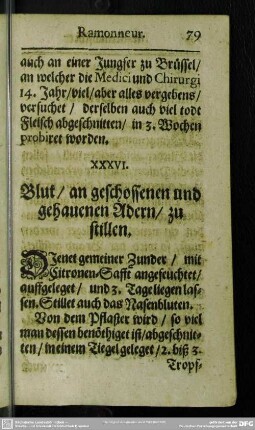 Ramonneur. 79
auch an einer Jungfer zu Brüssel/
an welcher die Medici und Chirurgi
14. Jahr/ viel/ aber alles vergebens/
versuchet/ derselben auch viel todt
Fleisch abgeschnitten/ in 3. Wochen
probiret worden.
XXXVI.
Blut/ an geschossenen und
gehauenen Adern/ zu
stillen.
Dienet gemeiner Zunder/ mit
Citronen-Safft angefeuchtet/
auffgeleget/ und 3. Tage liegen las-
sen. Stillet auch das Nasenbluten.
Von dem Pflaster wird/ so viel
man dessen benöthiget ist/ abgeschnit-
ten/ in einem Tiegel geleget/ 2. biß 3.
Tropf-